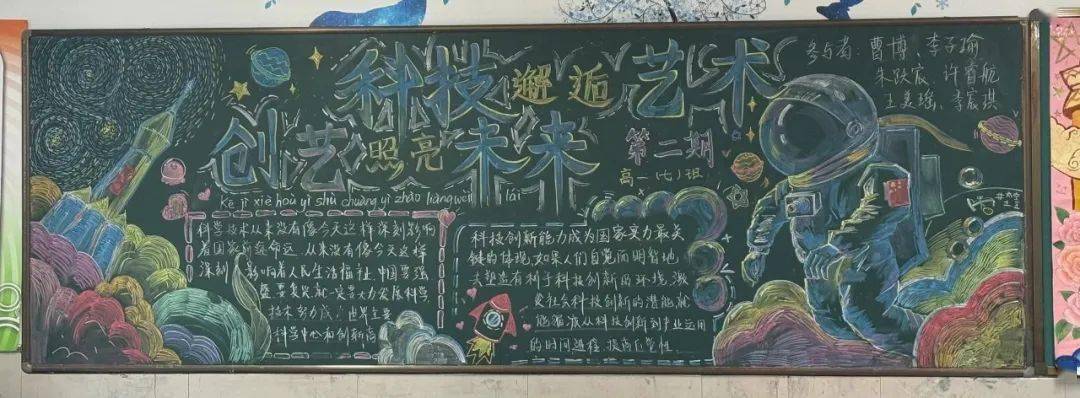 科技邂逅艺术
创艺照亮未来
第二期
高一(七)班
kē jì xiè hòu yì shù chuàng yì zhào liàng wèi lái
参与者:曹博、李子瑜
朱跃宸、许睿航
王美瑶、李宸琪
科学技术从来没有像今天这样深刻影响
着国家前途命运,从来没有像今天这样
深刻影响着人民生活福祉,中国要强
盛要复兴就一定要大力发展科学
技术努力成为世界主要
科学中心和创新高
科技创新能力成为国家实力最关
键的体现,如果人们自觉而明智地
去塑造有利于科技创新的环境,激
发社会科技创新的潜能就
能缩减从科技创新到产业运用
的时间进程,提高